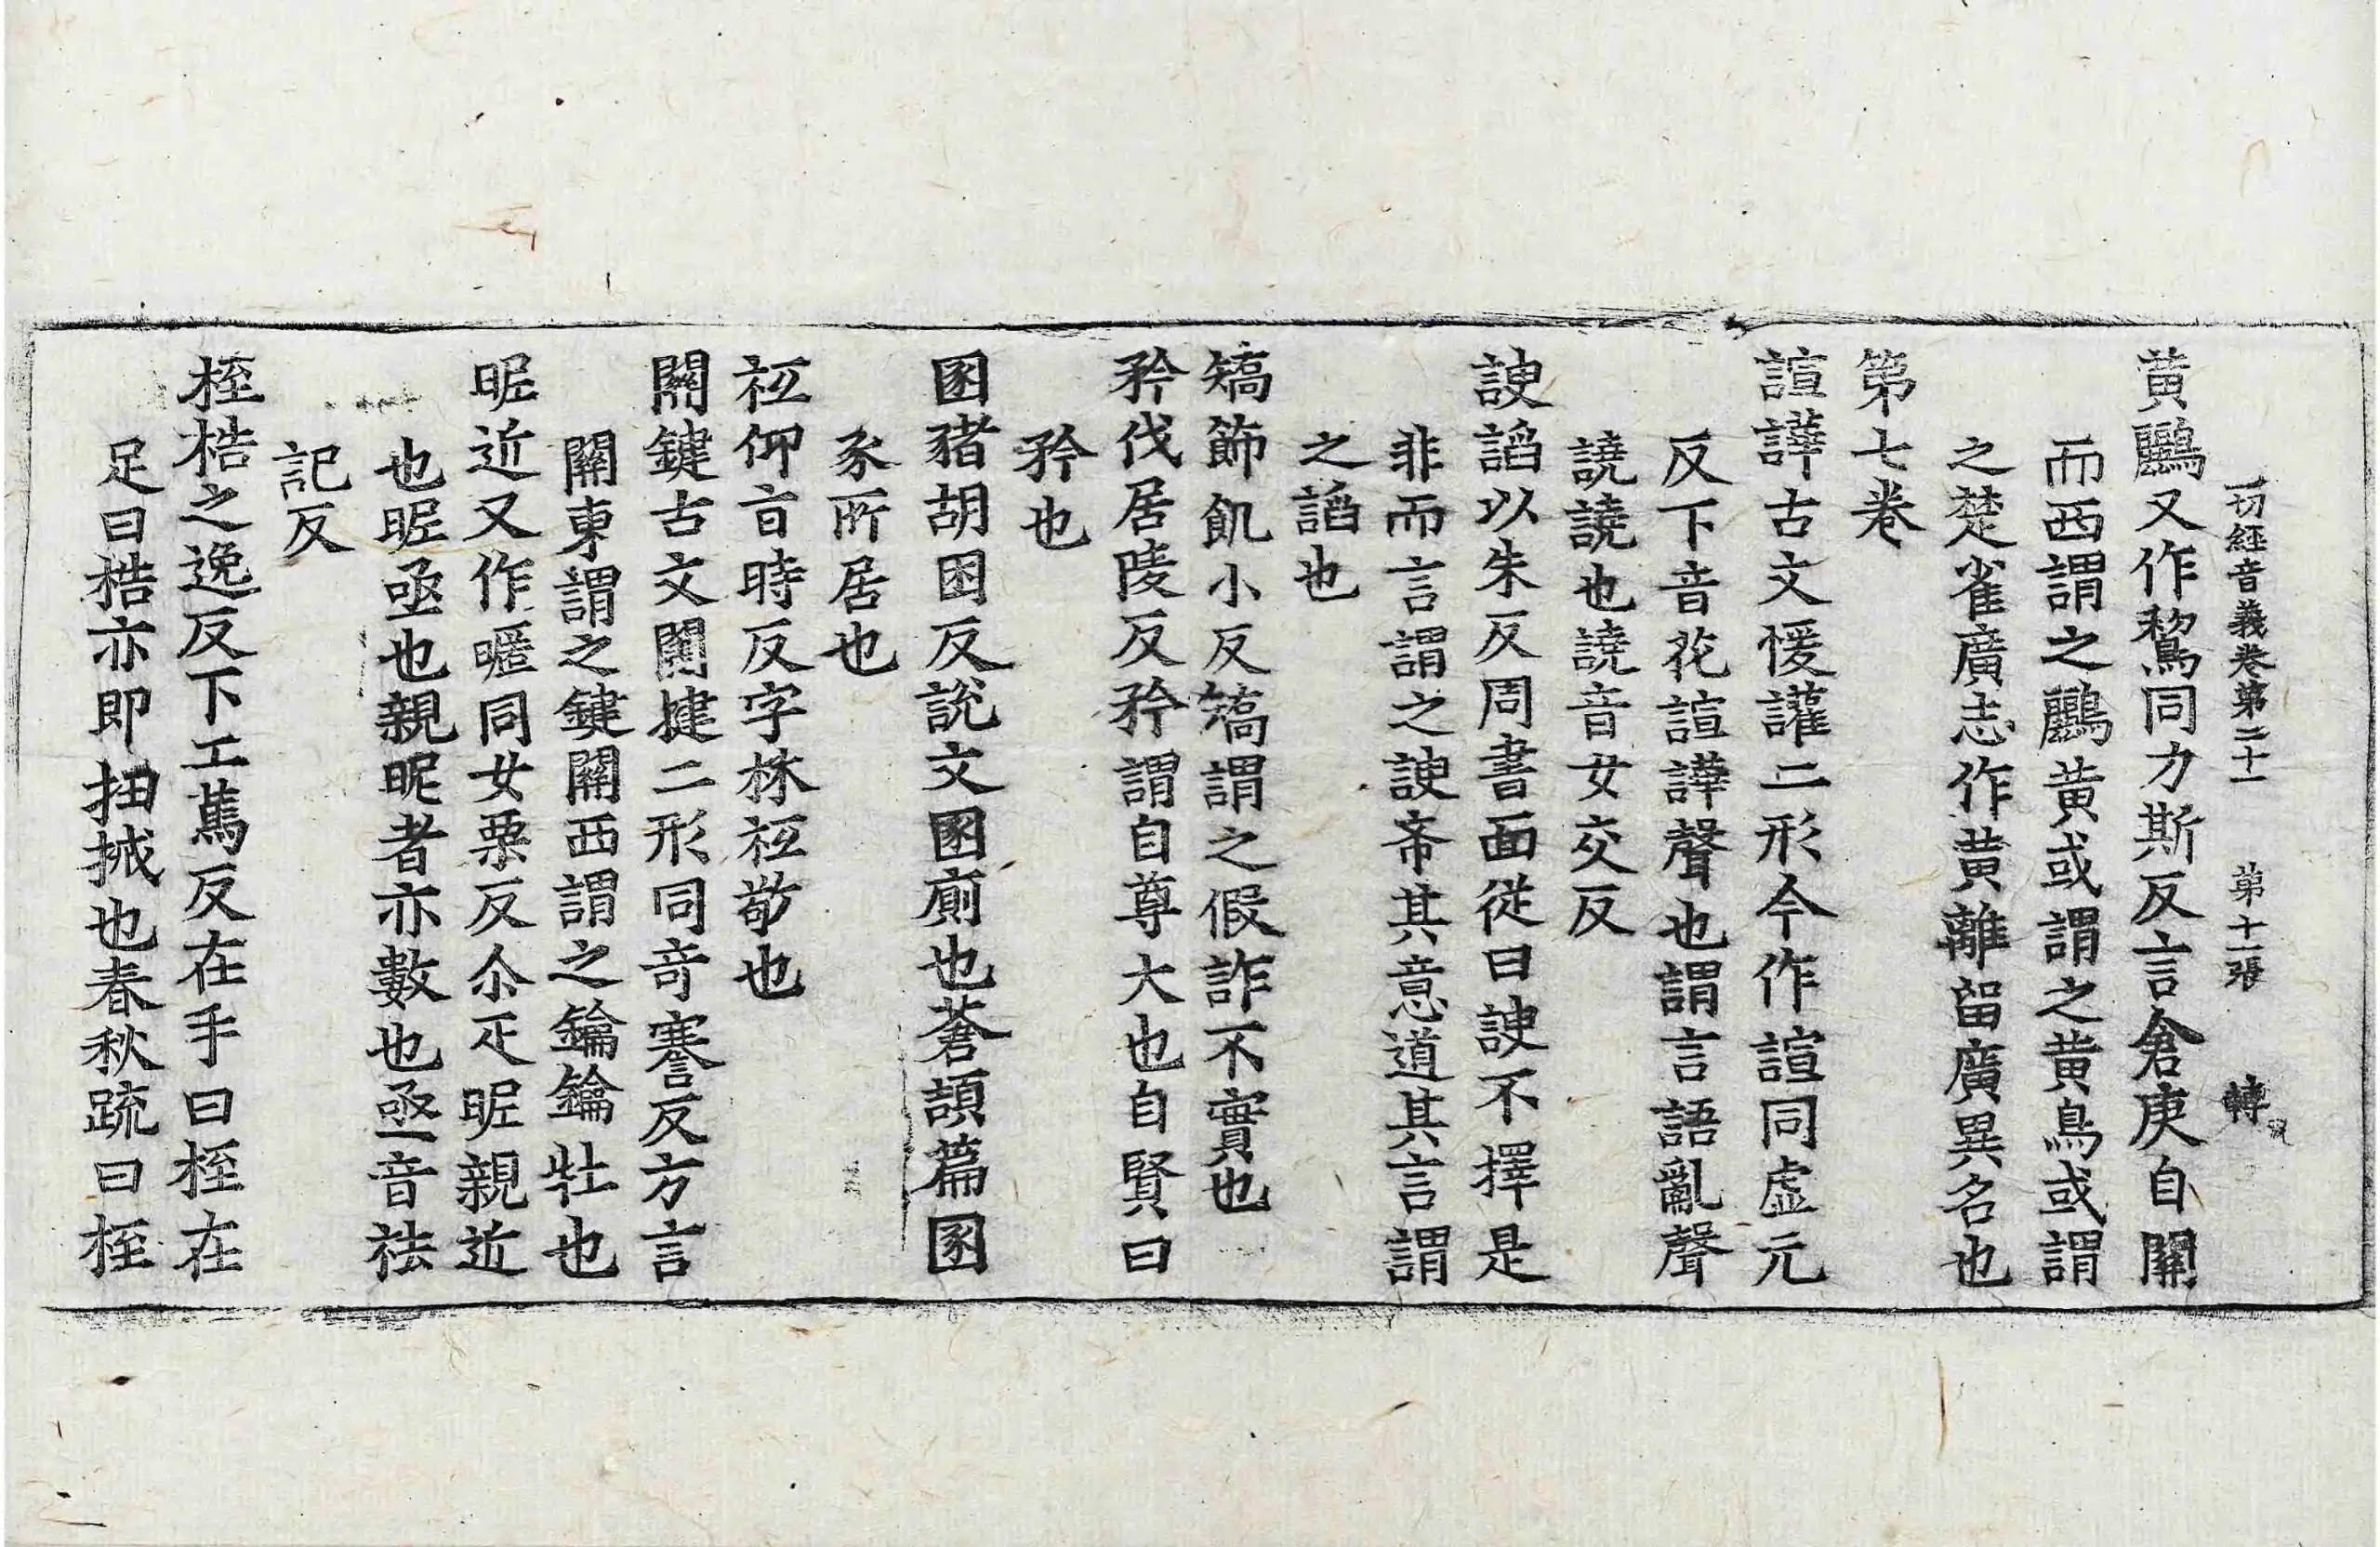 一切經音義卷第二十一 第十一張 轉
黃鸝又作鴷同力斯反言倉庚自關
而西謂之鸝黃或謂之黃鳥或謂
之楚雀廣志作黃離留廣異名也
第七卷
諠譁古文愋讙二形今作諠同虛元
反下音花諠譁聲也謂言語亂聲
譊譊也譊音女交反
諛謟以朱反周書面從曰諛不擇是
非而言謂之諛希其意道其言謂
之謟也
矯飾飢小反矯謂之假詐不實也
矜伐居陵反矜謂自尊大也自賢曰
矜也
圂豬胡困反說文圂廁也蒼頡篇圂
豕所居也
祗仰旨時反字林祗敬也
關鍵古文闑揵二形同奇謇反方言
關東謂之鍵關西謂之鑰鑰牡也
昵近又作暱同女栗反尒疋昵親近
也昵亟也親昵者亦數也亟音祛
記反
桎梏之逸反下工篤反在手曰桎在
足曰梏亦即杻械也春秋疏曰桎